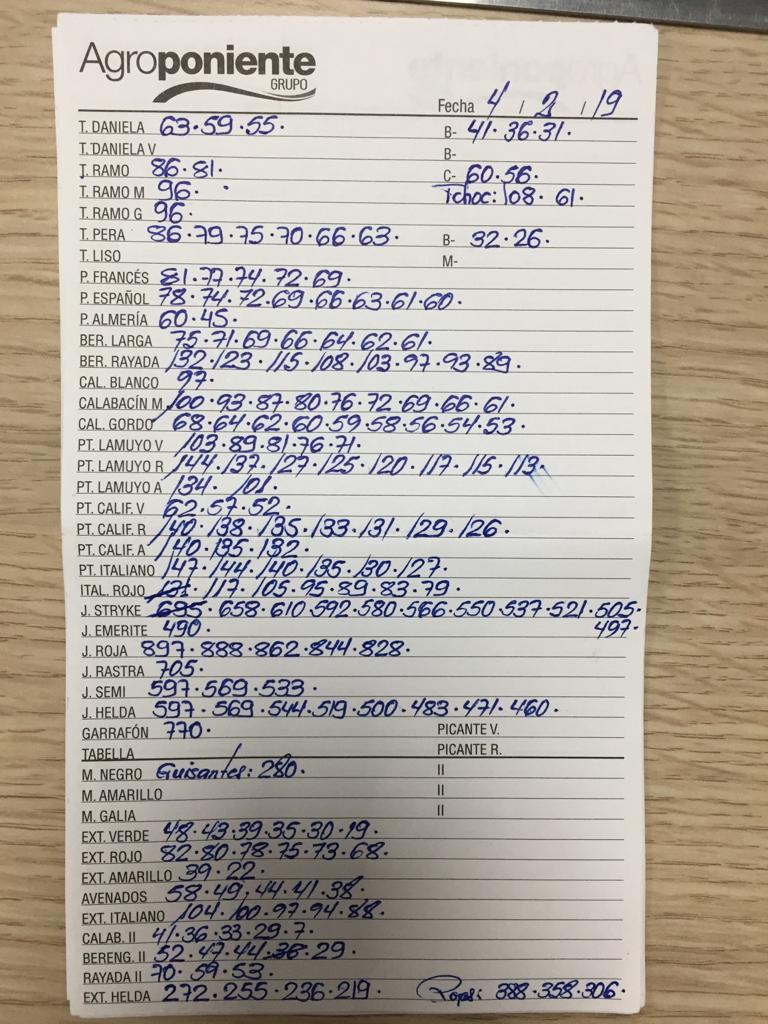 Agroponiente
GRUPO
Fecha 4 / 2 / 19
T. DANIELA 63·59·55· B- 41·36·31·
T. DANIELA V B-
T. RAMO 86·81· C- 60·56·
T. RAMO M 96· · Tchoc: 108· 61·
T. RAMO G 96·
T. PERA 86·79·75·70·66·63· B- 32·26·
T. LISO M-
P. FRANCÉS 81·77·74·72·69·
P. ESPAÑOL 78·74·72·69·66·63·61·60·
P. ALMERÍA 60·45·
BER. LARGA 75·71·69·66·64·62·61·
BER. RAYADA 132·123·115·108·103·97·93·89·
CAL. BLANCO 97·
CALABACÍN M 100·93·87·80·76·72·69·66·61·
CAL. GORDO 68·64·62·60·59·58·56·54·53·
PT. LAMUYO V 103·89·81·76·71·
PT. LAMUYO R 144·137·127·125·120·117·115·113·
PT. LAMUYO A 134· 101·
PT. CALIF. V 62·57·52·
PT. CALIF. R 140·138·135·133·131·129·126·
PT. CALIF. A 140·135·132·
PT. ITALIANO 147·144·140·135·130·127·
ITAL. ROJO 131·117·105·95·89·83·79·
J. STRYKE 695·658·610·592·580·566·550·537·521·505·
J. EMERITE 490· 497·
J. ROJA 897·888·862·844·828·
J. RASTRA 705·
J. SEMI 597·569·533·
J. HELDA 597·569·544·519·500·483·471·460·
GARRAFÓN 770· PICANTE V.
TABELLA PICANTE R.
M. NEGRO Guisantes: 280· II
M. AMARILLO II
M. GALIA II
EXT. VERDE 48·43·39·35·30·19·
EXT. ROJO 82·80·78·75·73·68·
EXT. AMARILLO 39·22·
AVENADOS 58·49·44·41·38·
EXT. ITALIANO 104·100·97·94·88·
CALAB. II 41·36·33·29·7·
BERENG. II 52·47·44·36·29·
RAYADA II 70·59·53·
EXT. HELDA 272·255·236·219· 388·358·306·